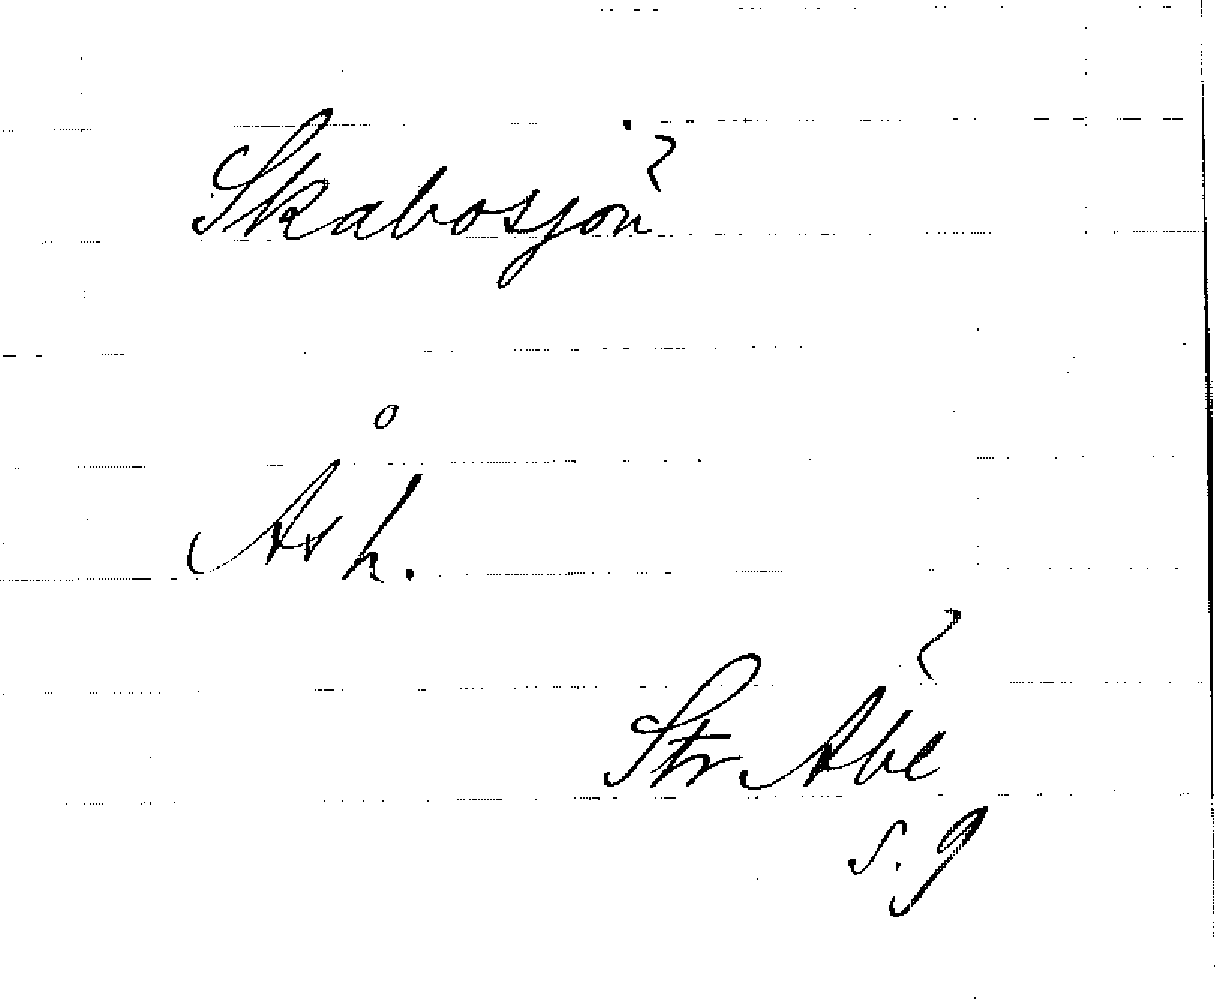 Skabosjön
Ås h.
Str Abe
s. 9